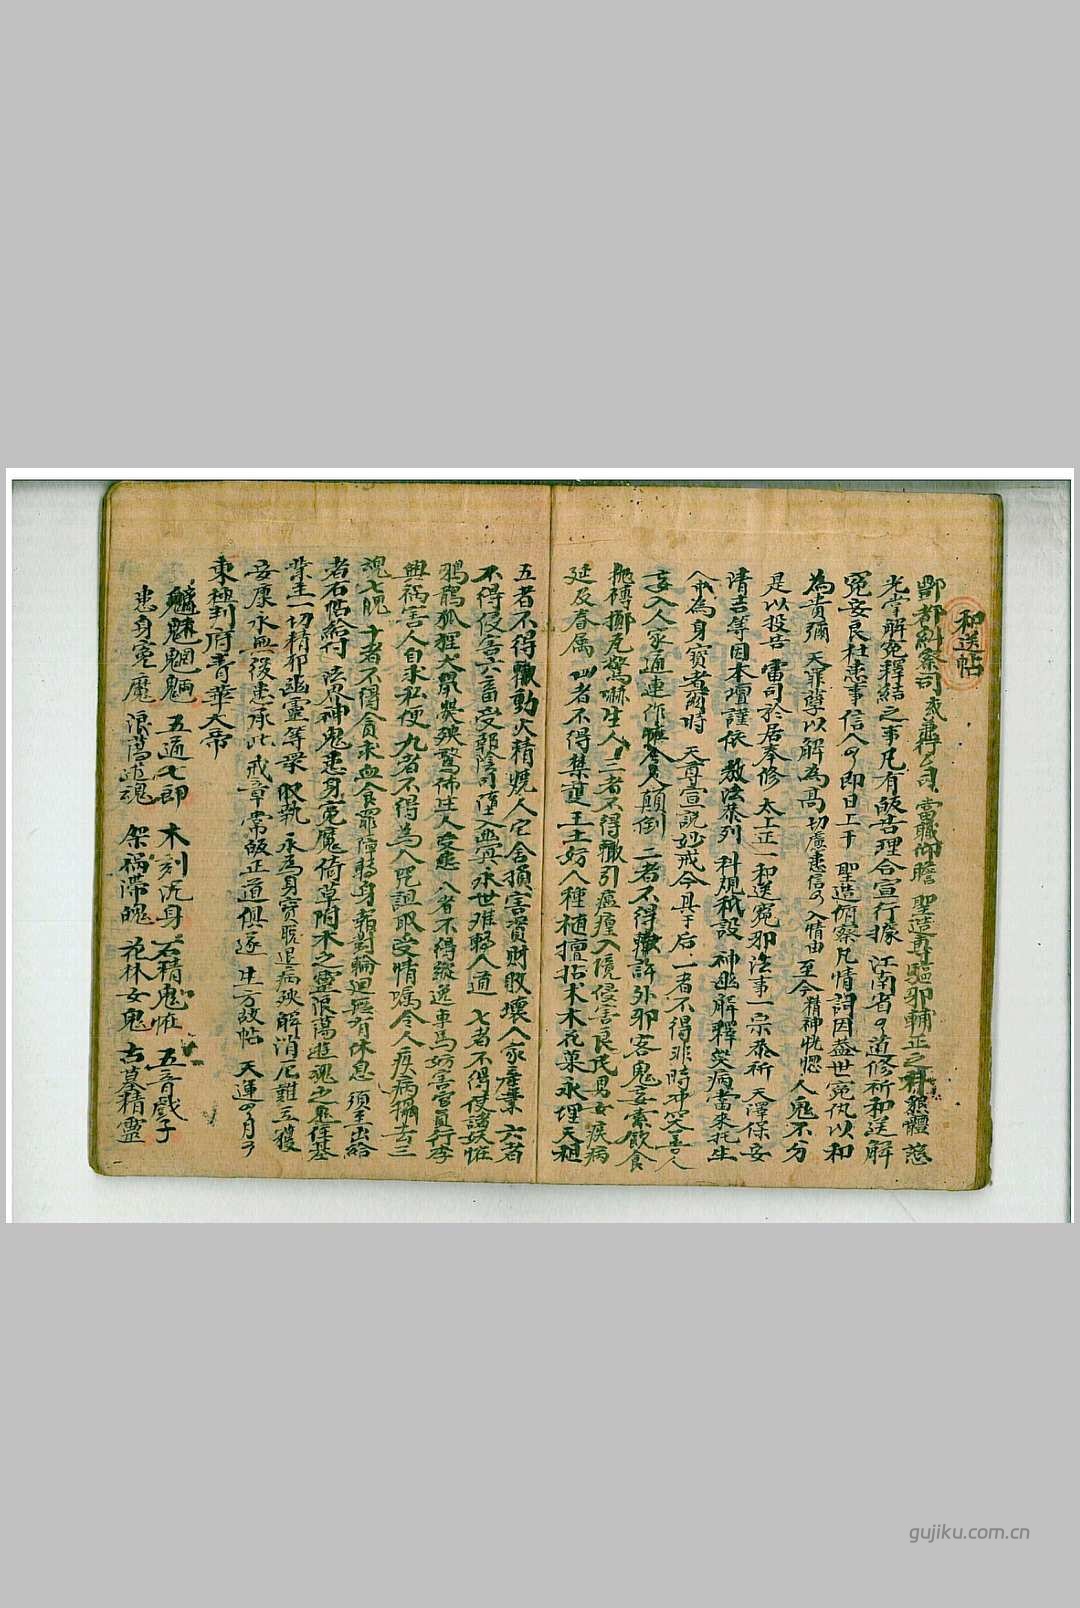 和送帖
酆都糾察司 或兼行公司 當職仰瞻 聖造專驅邪輔正之科貌體慈
光掌解冤釋結之事凡有皈告理合宣行據 江南省 道修祈和送解
冤安良杜患事信人 即日上于 聖造俯察凡情詞因蓋世冤仇以和
為貴彌 天罪孽以解為高切慮患信 入情由 至今精神恍惚 人鬼不分
是以投告 雷司於居奉修 太上正一和送冤邪法事一宗恭祈 天澤保安
清吉等因本壇謹依 教法恭列 科規秪設 神幽解釋災病當來托生
人 為身寶者爾時 天尊宣說妙戒今具于后 一者不得非時 笑善人
妄入人家通連作 令人顛倒 二者不得 許外邪客鬼妄索飲食
拋磚擲瓦驚嚇生人 三者不得輒引瘟 入境侵害良民男女疾病
延及眷属 四者不得禁 王土妨人種植擅 木花菓永埋天租
五者不得輒動火精燒人宅舍損害資財敗壞人家產業 六者
不得侵害六畜 陰司墮入幽冥永世难轉人道 七者不得使諸妖怪
鴉鵲狐狸犬鼠 殃驚怖生人受患 八者不得縱逸車馬妨害官員行李
與禍害人自求私便 九者不得為人咒詛取受情嘱令人疾病攝去三
魂七魄 十者不得貪求血食罪障轉身報對輪迴無有休息 須至出給
者右帖給付 法界神鬼患身冤魔倚草附木之靈浪蕩遊魂之鬼住基
業主一切精邪幽靈等眾 收執 永為身寶脫退病殃解消厄難 互獲
安康永無後患承此戒章常皈正道俱遂生方故帖 天運 月
東極 府青華大帝
魑魅魍魎 五通七郎 木刻沉身 石精鬼怪 五音戲子
患身冤魔 浪蕩遊魂 架禍滯魄 花林女鬼 古墓精靈
gujiku.com.cn